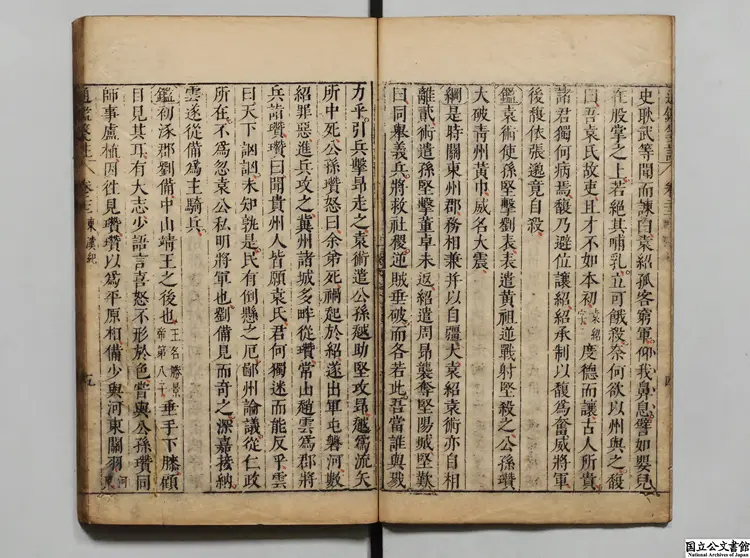 史耿武等聞而諫曰袁紹孤客窮軍仰我鼻息譬如嬰兒
在股掌之上若絕其哺乳立可餓殺奈何欲以州與之馥
曰吾袁氏故吏且才不如本初袁紹字度德而讓古人所貴
諸君獨何病焉馥乃避位讓紹紹承制以馥為奮威將軍
後馥依張邈竟自殺
鑑袁術使孫堅擊劉表表遣黃祖逆戰射堅殺之公孫瓚
大破青州黃巾威名大震
綱是時關東州郡務相兼并以自疆大袁紹袁術亦自相
離貳術遣孫堅擊董卓未返紹遣周昂襲奪堅陽城堅歎
曰同舉義兵將救社稷逆賊垂破而各若此吾當誰與戮
力乎引兵擊昂走之袁術遣公孫越助堅攻昂越為流矢
所中死公孫瓚怒曰余弟死禍起於紹遂出軍屯磐河數
紹罪惡進兵攻之冀州諸城多畔從瓚常山趙雲為郡將
兵詣瓚瓚曰聞貴州人皆願袁氏君何獨迷而能反乎雲
曰天下訩訩未知孰是民有倒懸之厄鄙州論議從仁政
所在不為忽袁公私明將軍也劉備見而奇之深嘉接納
雲遂從備為主騎兵
鑑初涿郡劉備中山靖王之後也王名勝景帝第八子垂手下膝顧
自見其耳有大志少語言喜怒不形於色嘗與公孫瓚同
師事盧植因往見瓚瓚以為平原相備少與河東關羽
東漢紀
五
国立公文書館
National Archives of Japan